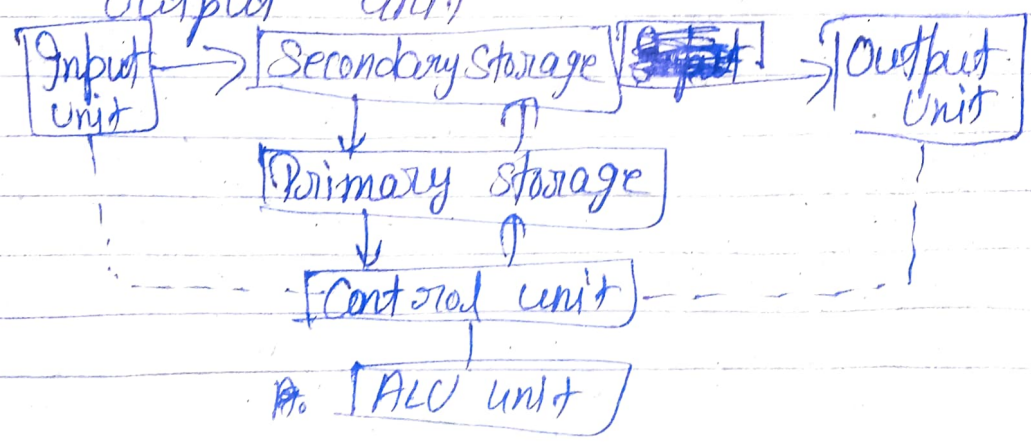 Output unit
Input unit
Secondary Storage
Output unit
Primary storage
Control unit
ALU unit